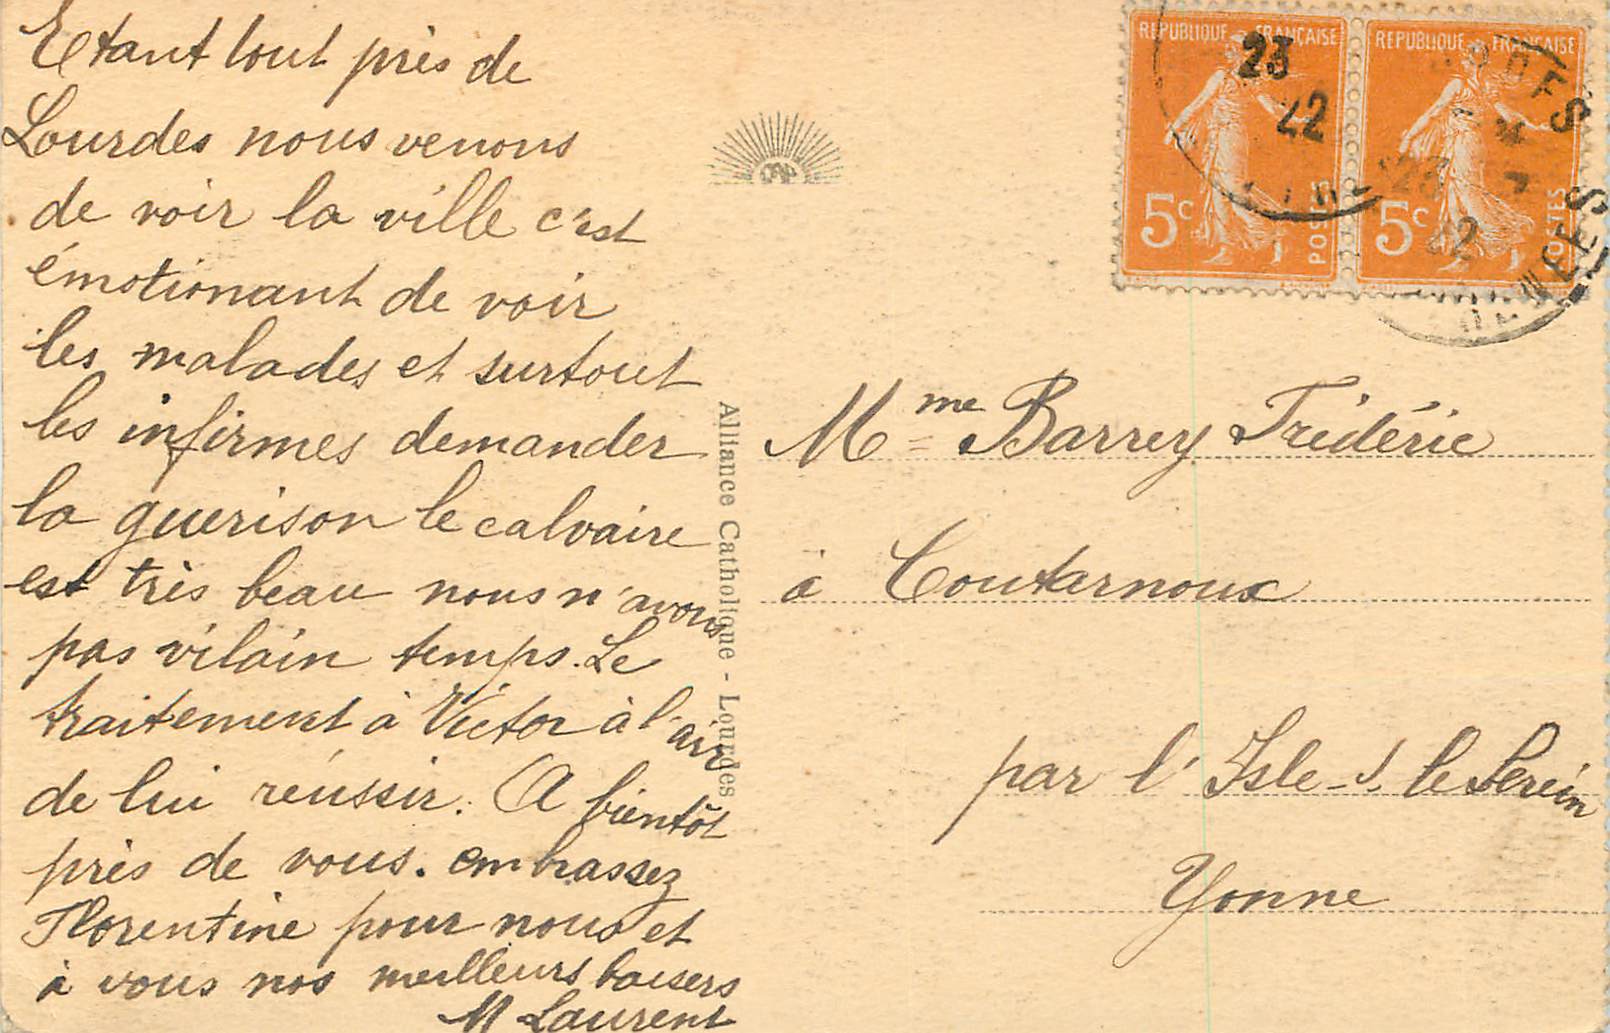 Etant tout près de
Lourdes nous venons
de voir la ville c'est
émotionant de voir
les malades et surtout
les infirmes demander
la guerison le calvaire
est très beau nous n'avons
pas vilain temps. Le
traitement à Victor à l'air
de lui réussir. A bientôt
près de vous. embrassez
Florentine pour nous et
à vous nos meilleurs baisers
M Laurent
Alliance Catholique - Lourdes
REPUBLIQUE FRANÇAISE
5c
POSTES
REPUBLIQUE FRANÇAISE
5c
POSTES
23
22
23
22
Mme Barrey Frédéric
à Coutarnoux
par l'Isle-s. le Serein
Yonne